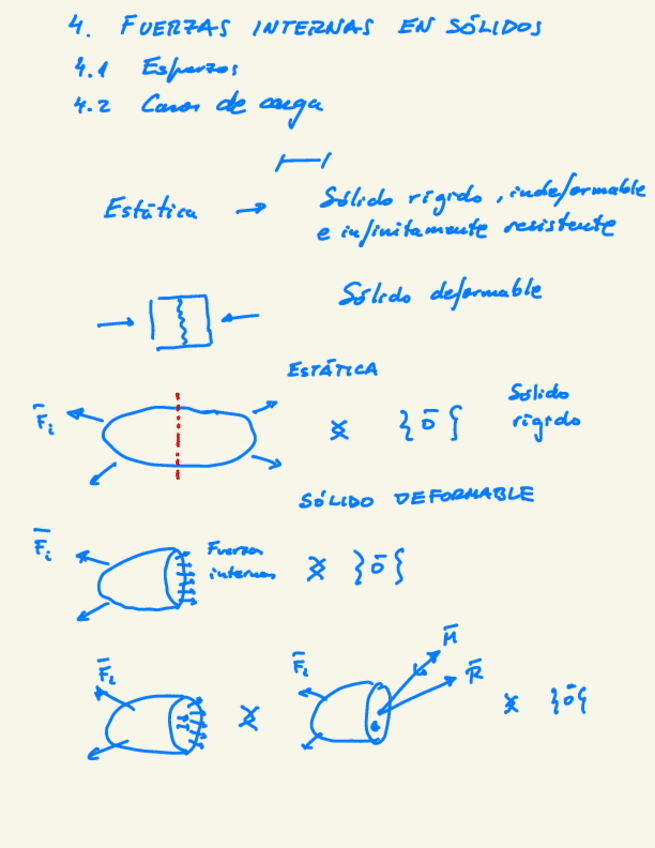 4. FUERZAS INTERNAS EN SÓLIDOS
4.1 Esfuerzos
4.2 Casos de carga
Estática → Sólido rígido, indeformable
e infinitamente resistente
Sólido deformable
ESTÁTICA
F̄i
{ō}
Sólido
rígido
SÓLIDO DEFORMABLE
F̄i
Fuerzas
internas
{ō}
F̄i
F̄i
M̄
R̄
{ō}